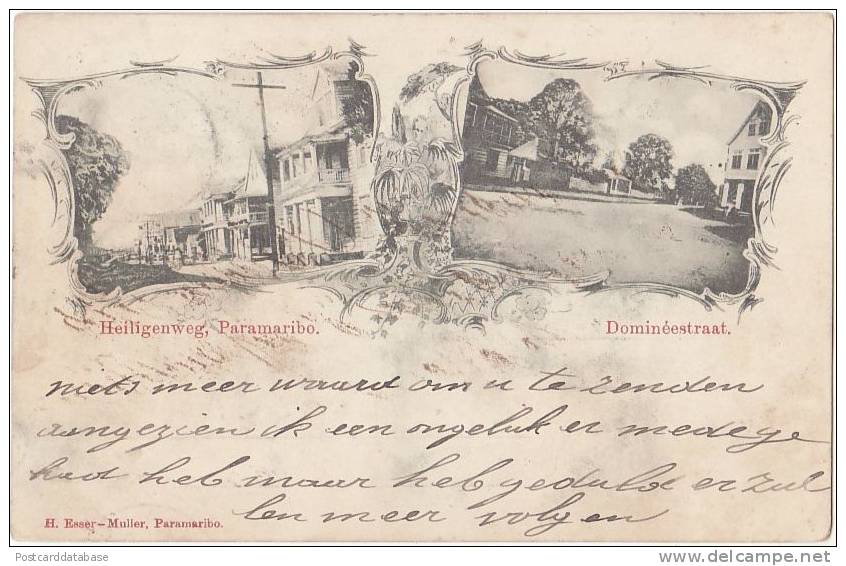 Heiligenweg, Paramaribo.
Dominéestraat.
niets meer waard om u te zenden
aangezien ik een ongeluk er medege
had heb maar heb geduld er zul
len meer volgen
H. Esser-Muller, Paramaribo.
Postcarddatabase
delcampe.net